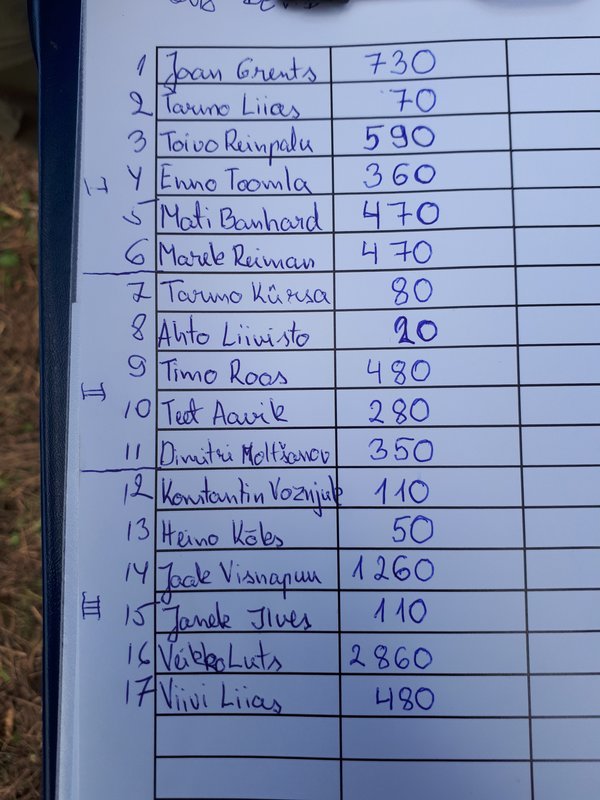 1 Jaan Grents 730
2 Tarmo Liias 70
3 Toivo Reinpalu 590
I 4 Enno Toomla 360
5 Mati Banhard 470
6 Marek Reiman 470
7 Tarmo Kûrsa 80
8 Ahto Liivisto 20
9 Timo Roas 480
II 10 Teet Aavik 280
11 Dimitri Moltšanov 350
12 Konstantin Voznjuk 110
13 Heino Kõks 50
14 Jaak Visnapuu 1260
III 15 Janek Ilves 110
16 Veikko Luts 2860
17 Viivi Liias 480